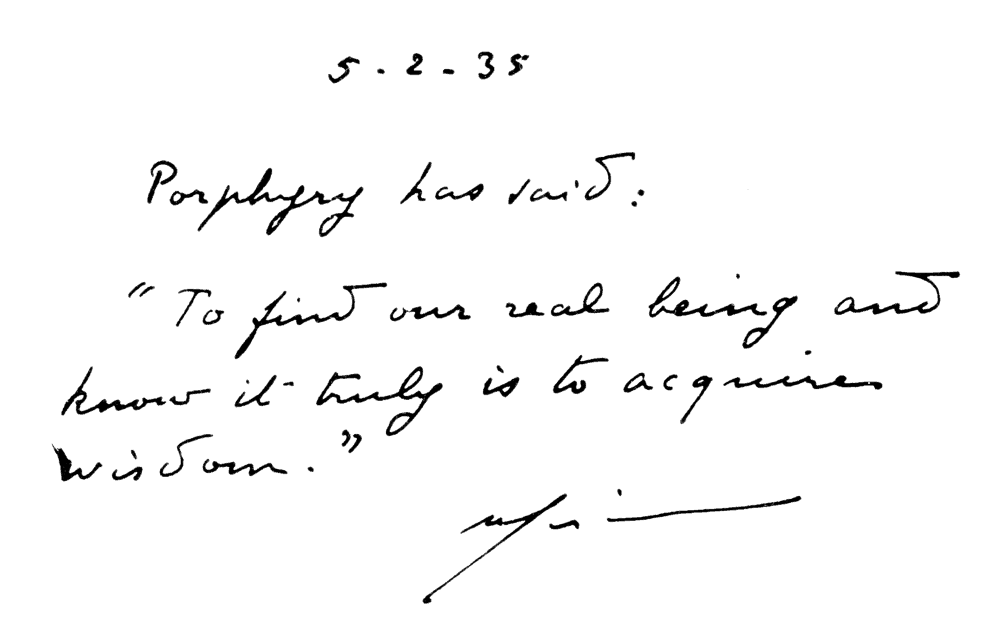 5-2-35
Porphyry has said:
"To find our real being and
know it truly is to acquire
wisdom."